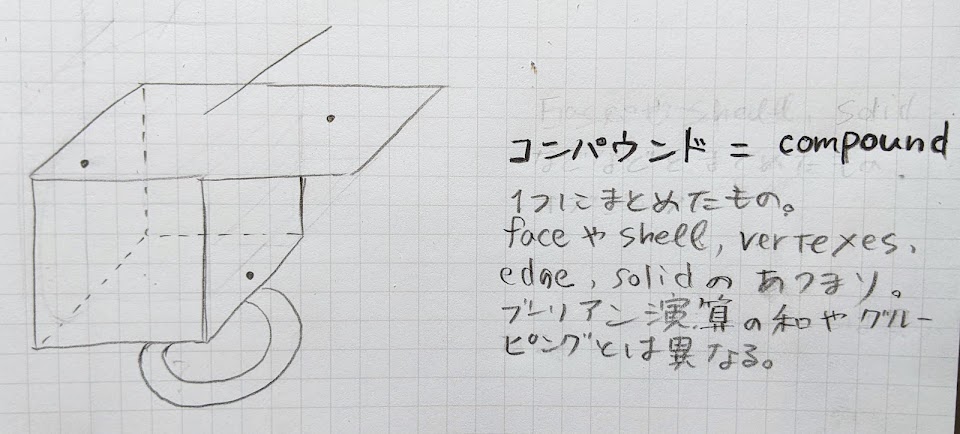 コンパウンド = compound
1つにまとめたもの。
faceやshell, vertexes,
edge, solidのあつまり。
ブーリアン演算の和やグルー
ピングとは異なる。